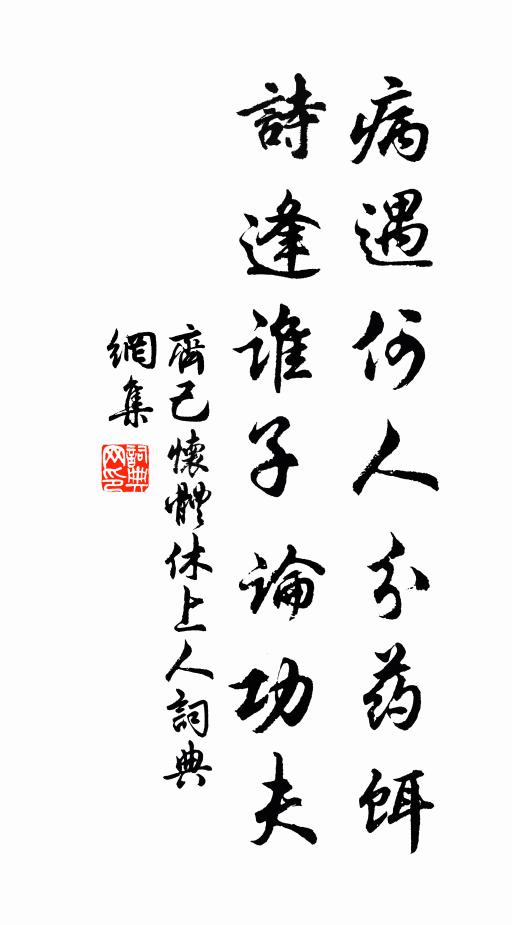 病遇何人分药餌
詩逢谁子論功夫
齊己懷體休上人詞典
網集
詞典
网印